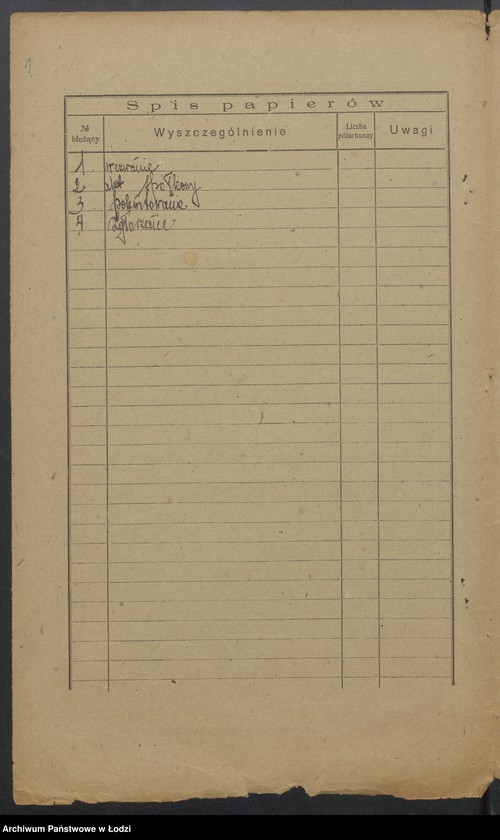 1
Spis papierów
№ bieżący Wyszczególnienie Liczba półarkuszy Uwagi
1 wezwanie
2 akt spółkowy
3 pokwitowanie
4 zgłoszenie
Archiwum Państwowe w Łodzi